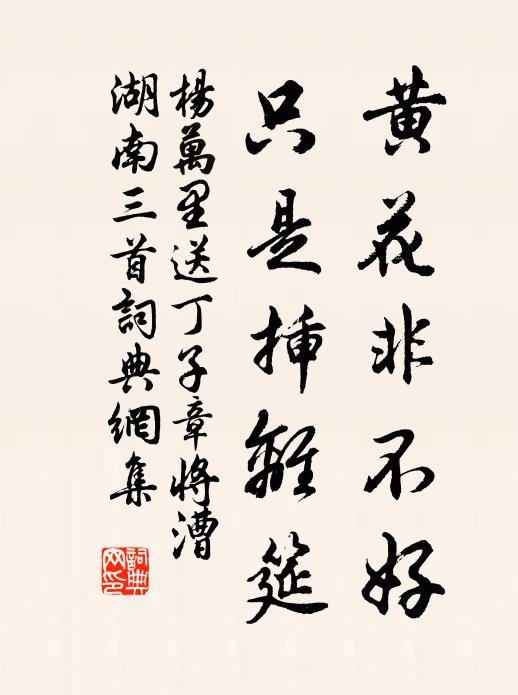 黄花非不好
只是揷離筵
楊萬里送丁子章將漕
湖南三首詞典網集
詞典
网印